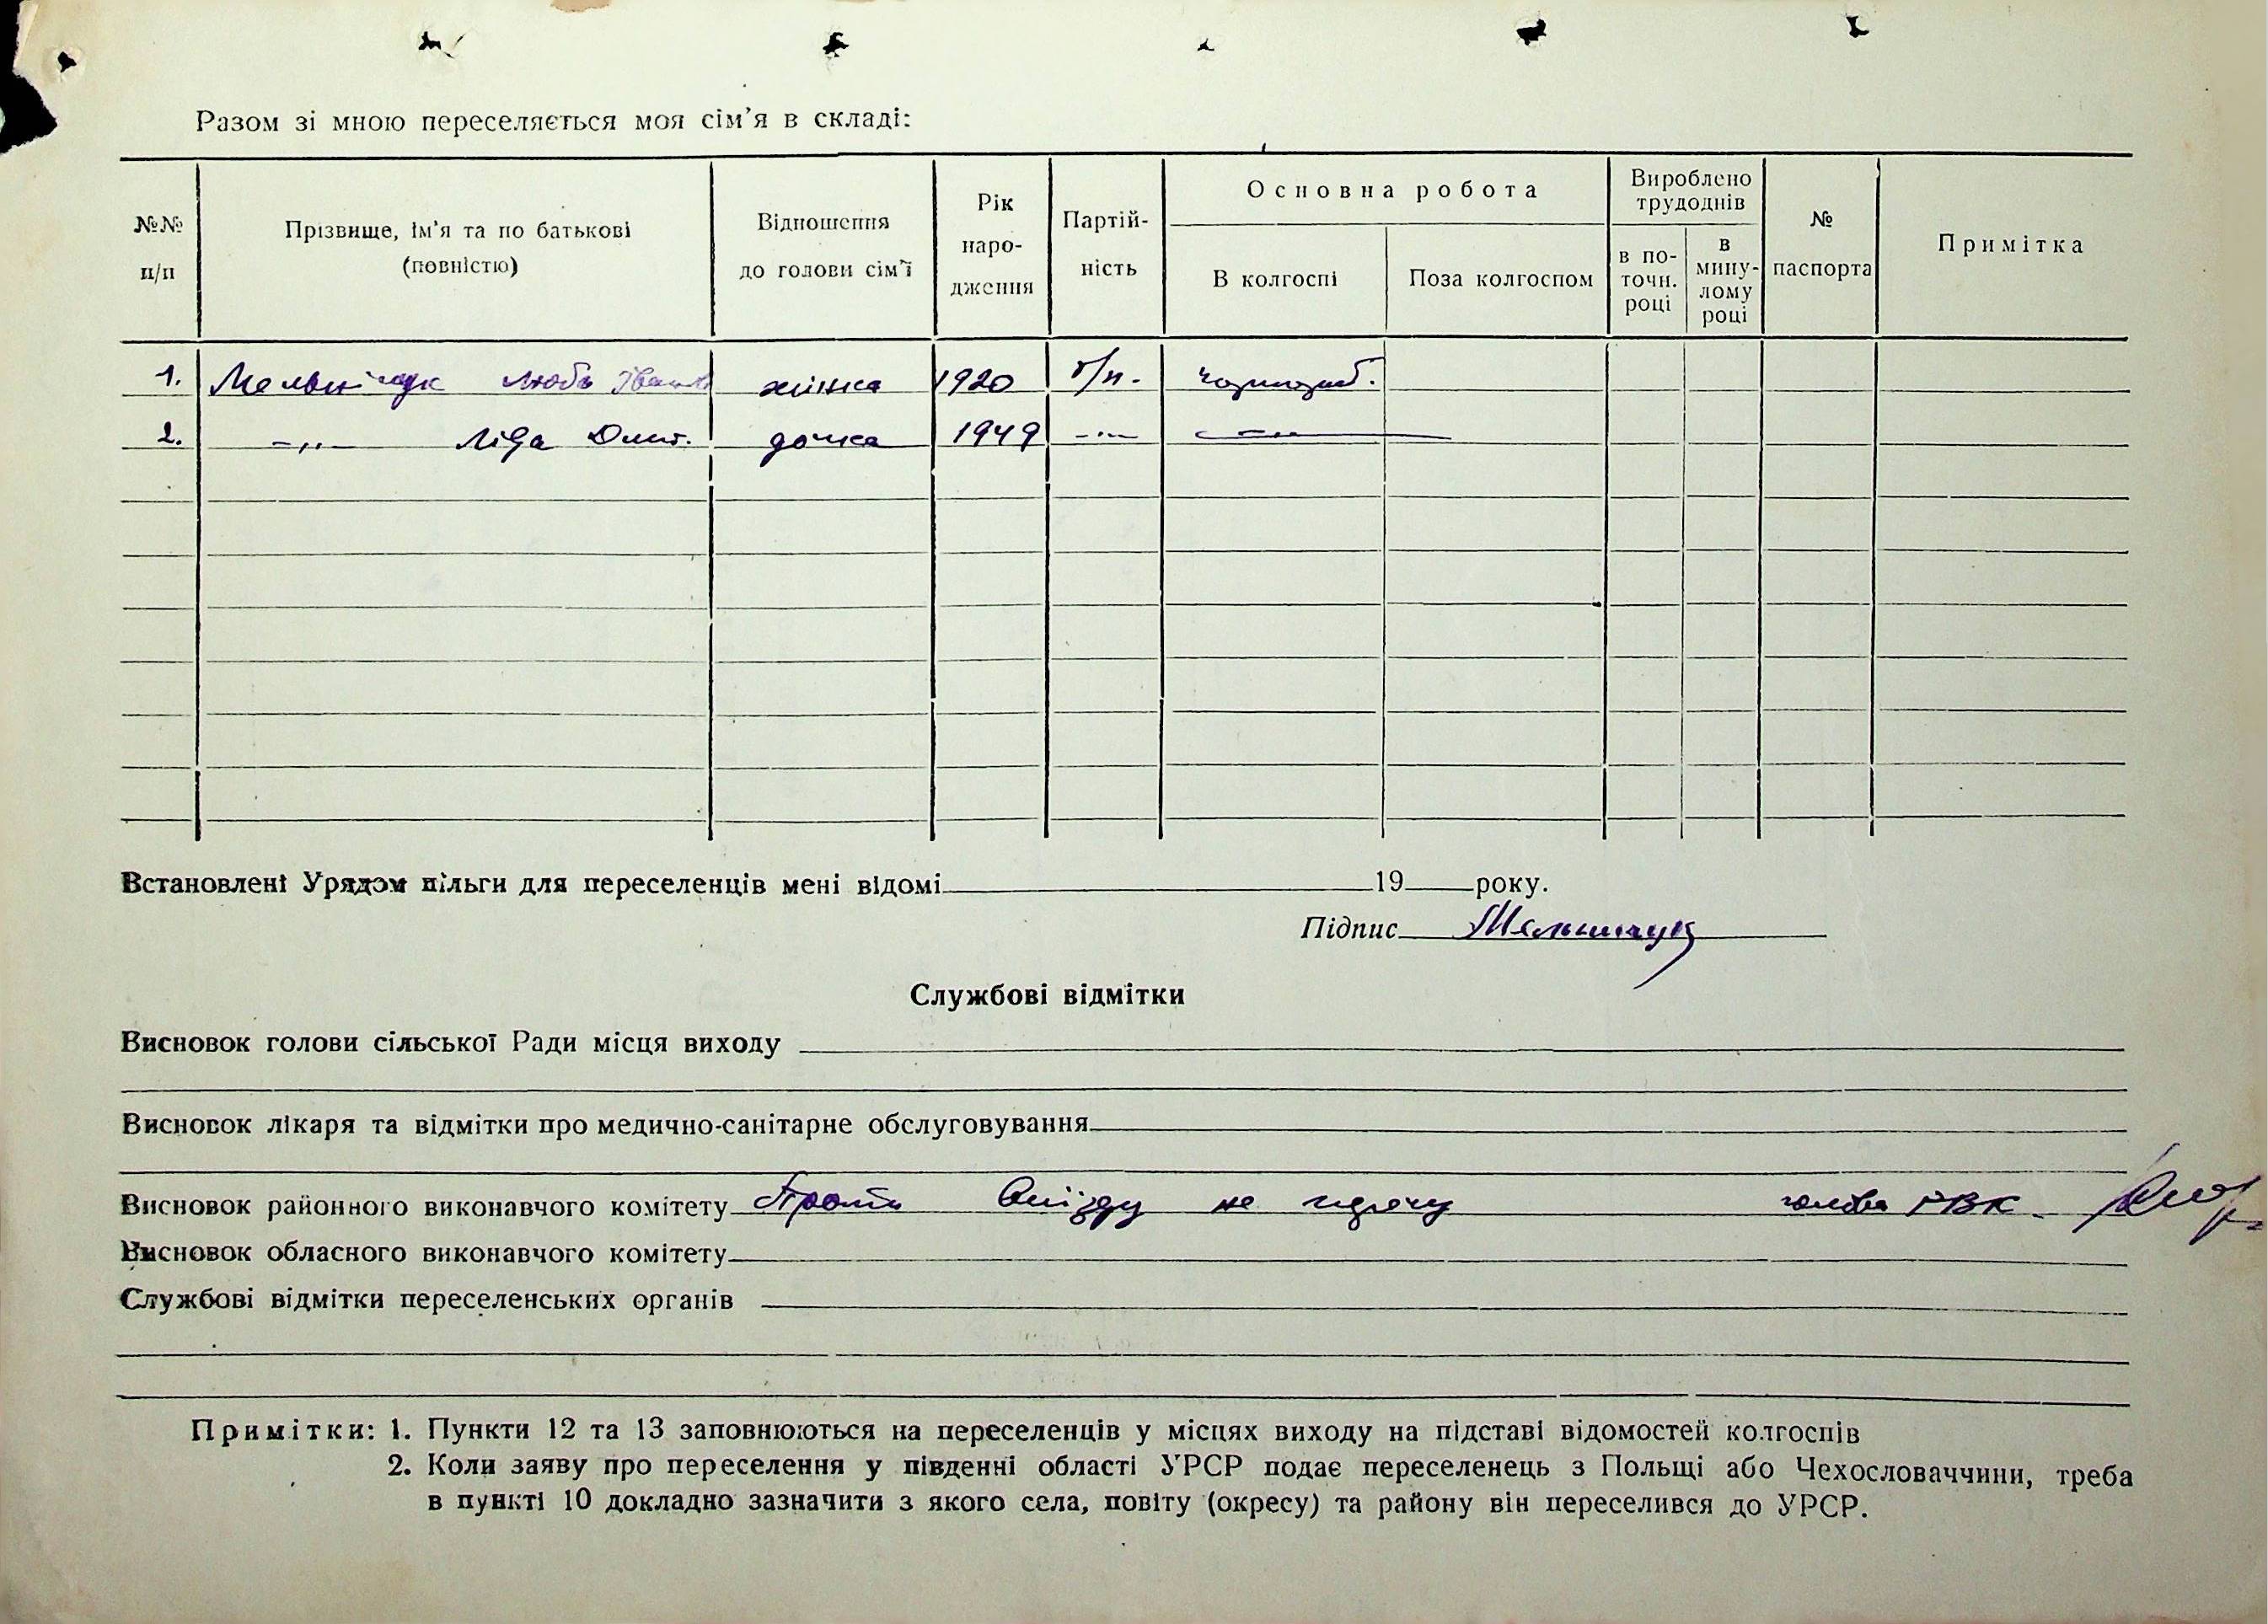 Разом зі мною переселяється моя сім'я в складі:
№№ п/п
Прізвище, ім'я та по батькові (повністю)
Відношення до голови сім'ї
Рік народження
Партійність
Основна робота
В колгоспі
Поза колгоспом
Вироблено трудоднів
в поточн. році
в минулому році
№ паспорта
Примітка
1. Мельничук Люба Іван. жінка 1920 б/п. чорнороб.
2. -„- Ліда Дмит. дочка 1949 -„- -„-
Встановлені Урядом пільги для переселенців мені відомі 19 року.
Підпис Мельничук
Службові відмітки
Висновок голови сільської Ради місця виходу
Висновок лікаря та відмітки про медично-санітарне обслуговування
Висновок районного виконавчого комітету Проти виїзду не голова РВК
Висновок обласного виконавчого комітету
Службові відмітки переселенських органів
Примітки: 1. Пункти 12 та 13 заповнюються на переселенців у місцях виходу на підставі відомостей колгоспів
2. Коли заяву про переселення у південні області УРСР подає переселенець з Польщі або Чехословаччини, треба
в пункті 10 докладно зазначити з якого села, повіту (окресу) та району він переселився до УРСР.